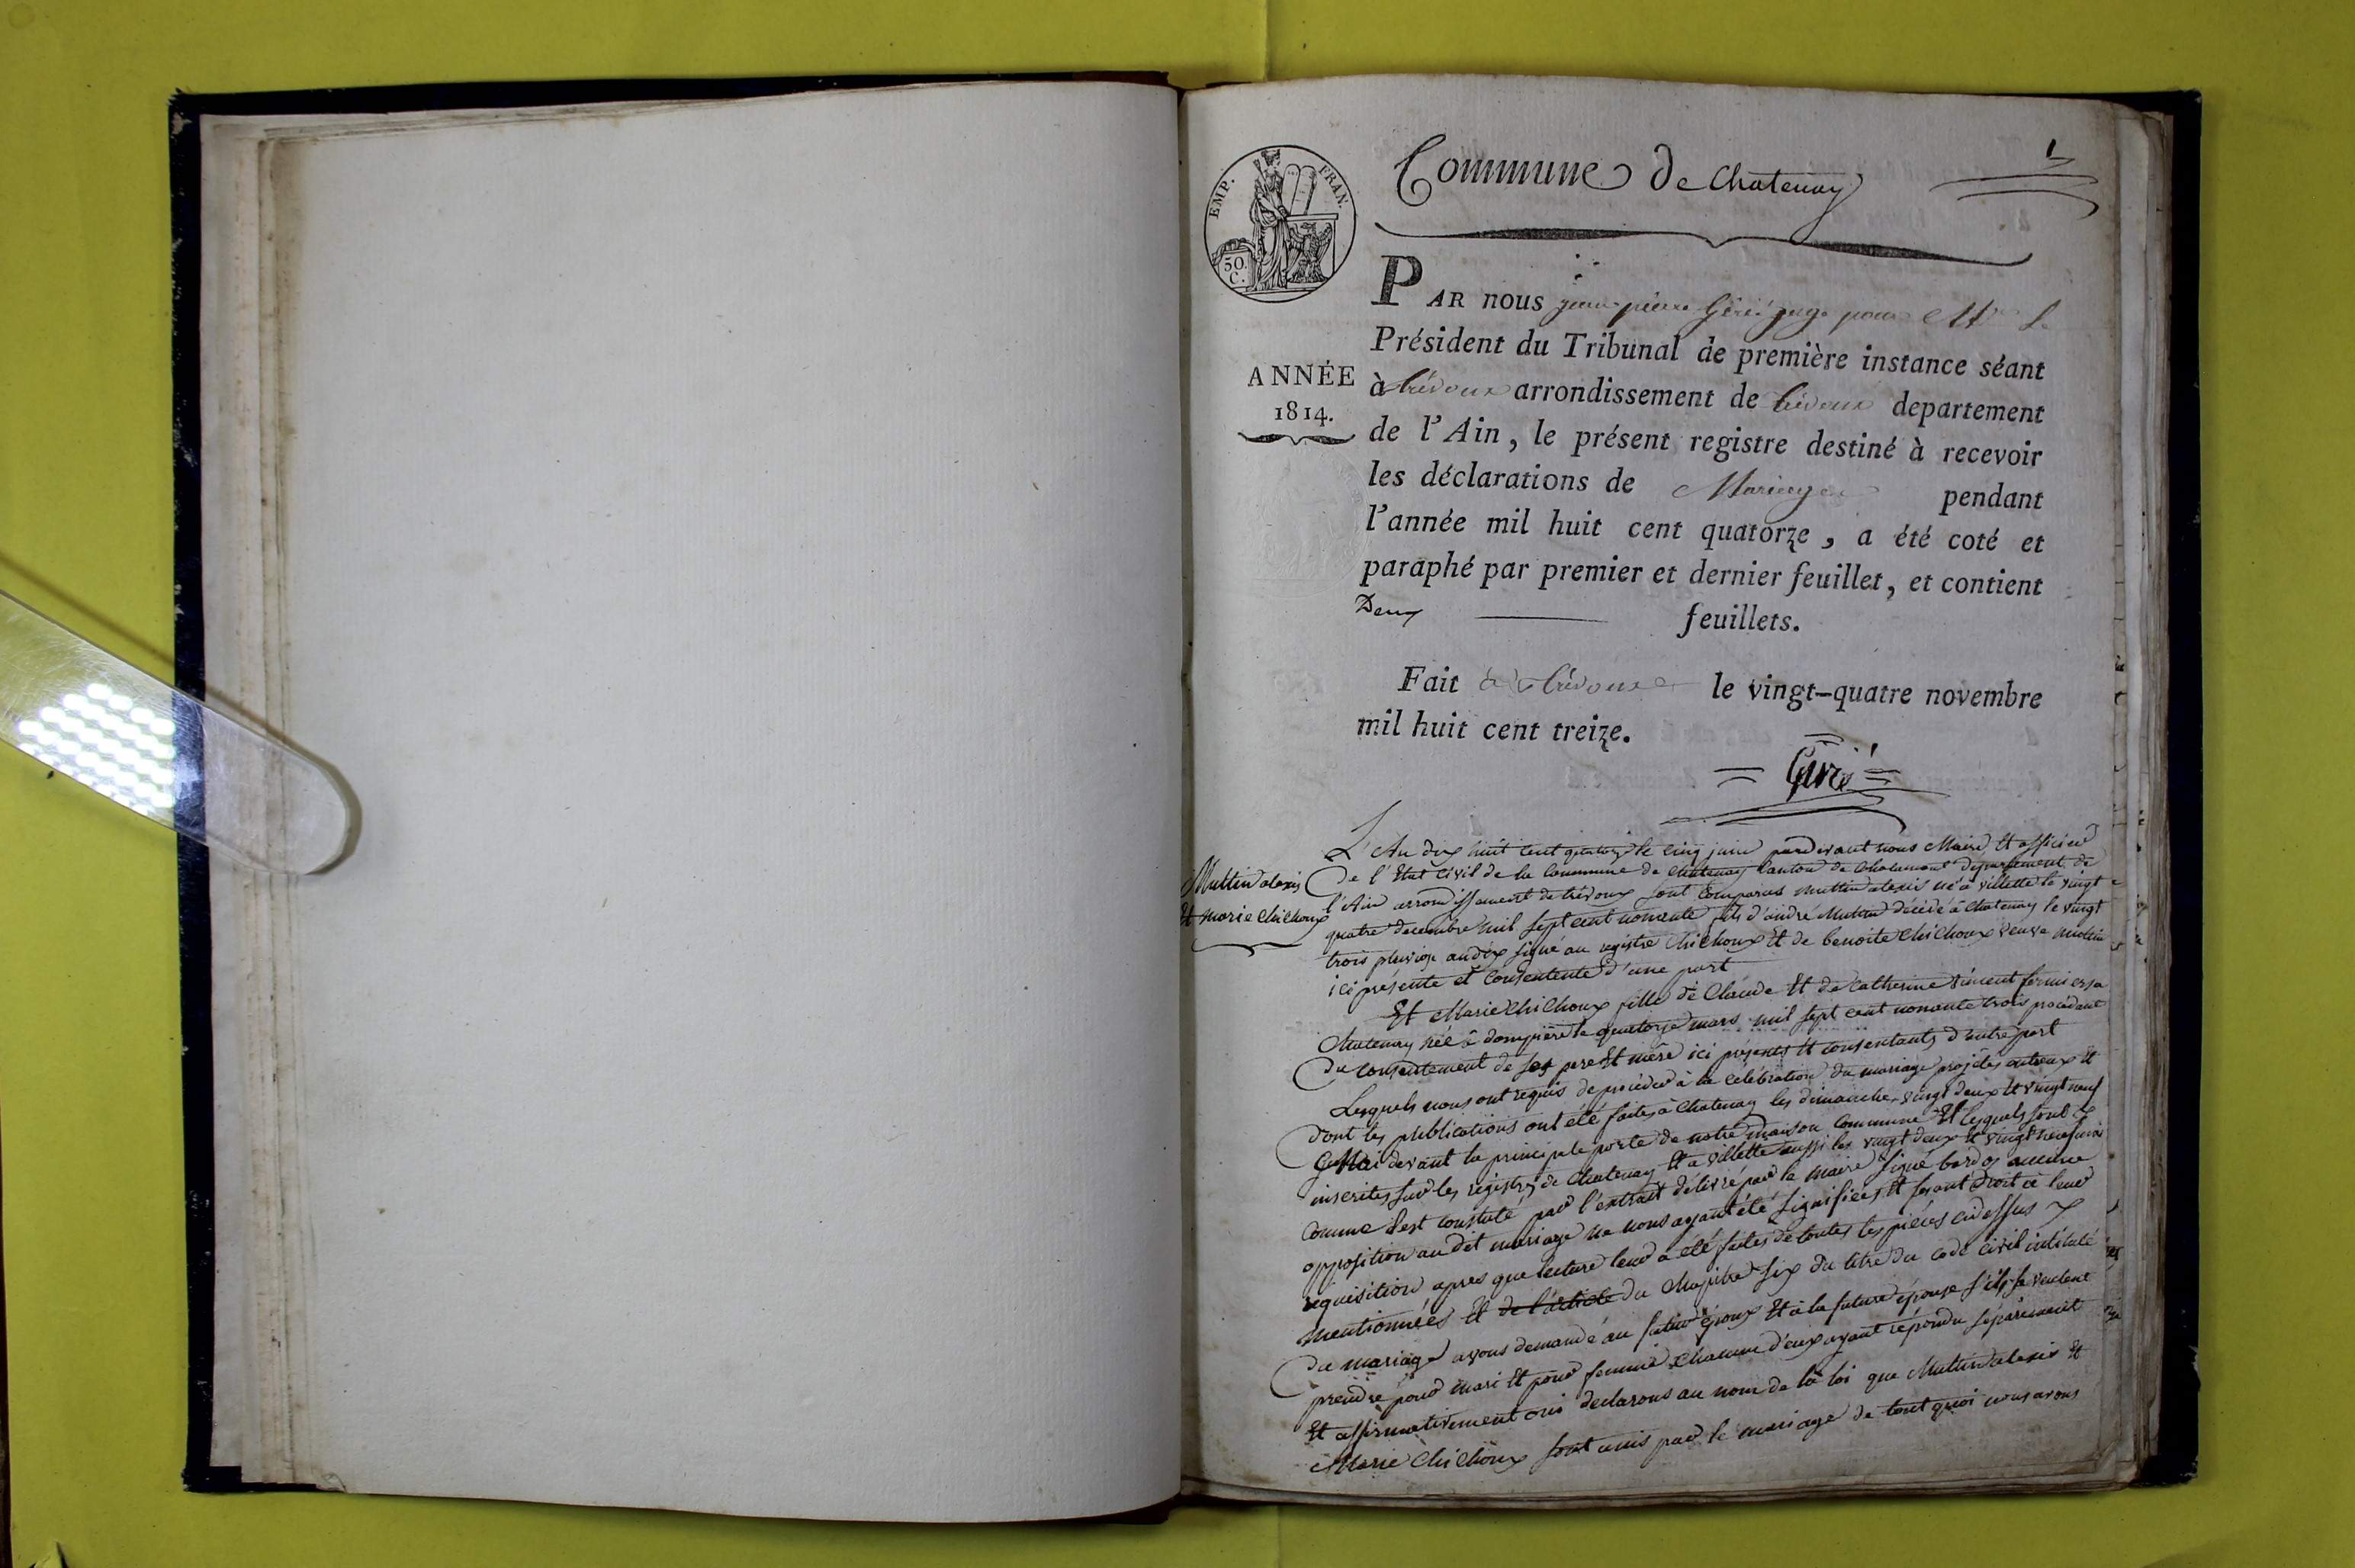 EMP. FRAN.
50 C.
Commune de Chatenay
1
PAR nous jean pierre Girié juge pour Mr Le
Président du Tribunal de première instance séant
à trévoux arrondissement de trévoux departement
de l'Ain, le présent registre destiné à recevoir
les déclarations de Mariages pendant
l'année mil huit cent quatorze, a été coté et
paraphé par premier et dernier feuillet, et contient
Deux feuillets.
ANNÉE
1814.
Fait à trévoux le vingt-quatre novembre
mil huit cent treize.
Girié
Muttin alexis
Et marie Chichoux
L'An dix huit cent quatorze le cinq juin pardevant nous Maire Et officier
De l'Etat Civil de la Commune de chatenay Canton de Chalamont departement de
l'Ain arrondissement de trévoux sont Comparus muttin alexis né à villette le vingt
quatre decembre mil sept cent nonante fils d'andré Mutin décédé à Chatenay le vingt
trois pluviose an dix signé au registre Chichoux Et de benoite Chichoux veuve muttin
ici présente et Consentente d'une part
Et Marie Chichoux fille de Claude Et de Catherine Siment fermiers a
Chatenay née à dompierre le quatorze mars mil sept cent nonante trois procédant
Du consentement de ses pere Et mère ici présents Et consentants d'autre part
Lesquels nous ont requis de procéder à la célébration du mariage projetés entreux Et
dont les publications ont été faites à Chatenay les dimanches vingt deux Et vingt neuf
Mai devant la principale porte de notre maison Commune Et lesquels sont
inscrites sur les régistres de Chatenay Et a villette aussi les vingt deux Et vingt neuf mai
Comme s'est constaté par l'extrait délivré par le maire signé bardos aucune
opposition au dit mariage ne nous ayant été signifiées Et fesant Droit à leur
réquisition apres que lecture leur a été faites de toutes les pièces cidessus
mentionnées Et de l'article Du Chapitre six du titre du code Civil intitulé
Du mariage avons demandé au futur époux Et à la future épouse s'ils se veulent
prendre pour mari Et pour femme Chacun d'eux ayant répondu séparément
Et affirmativement oui declarons au nom de la loi que Muttin alexis Et
Marie Chichoux sont unis par le mariage de tout quoi nous avons